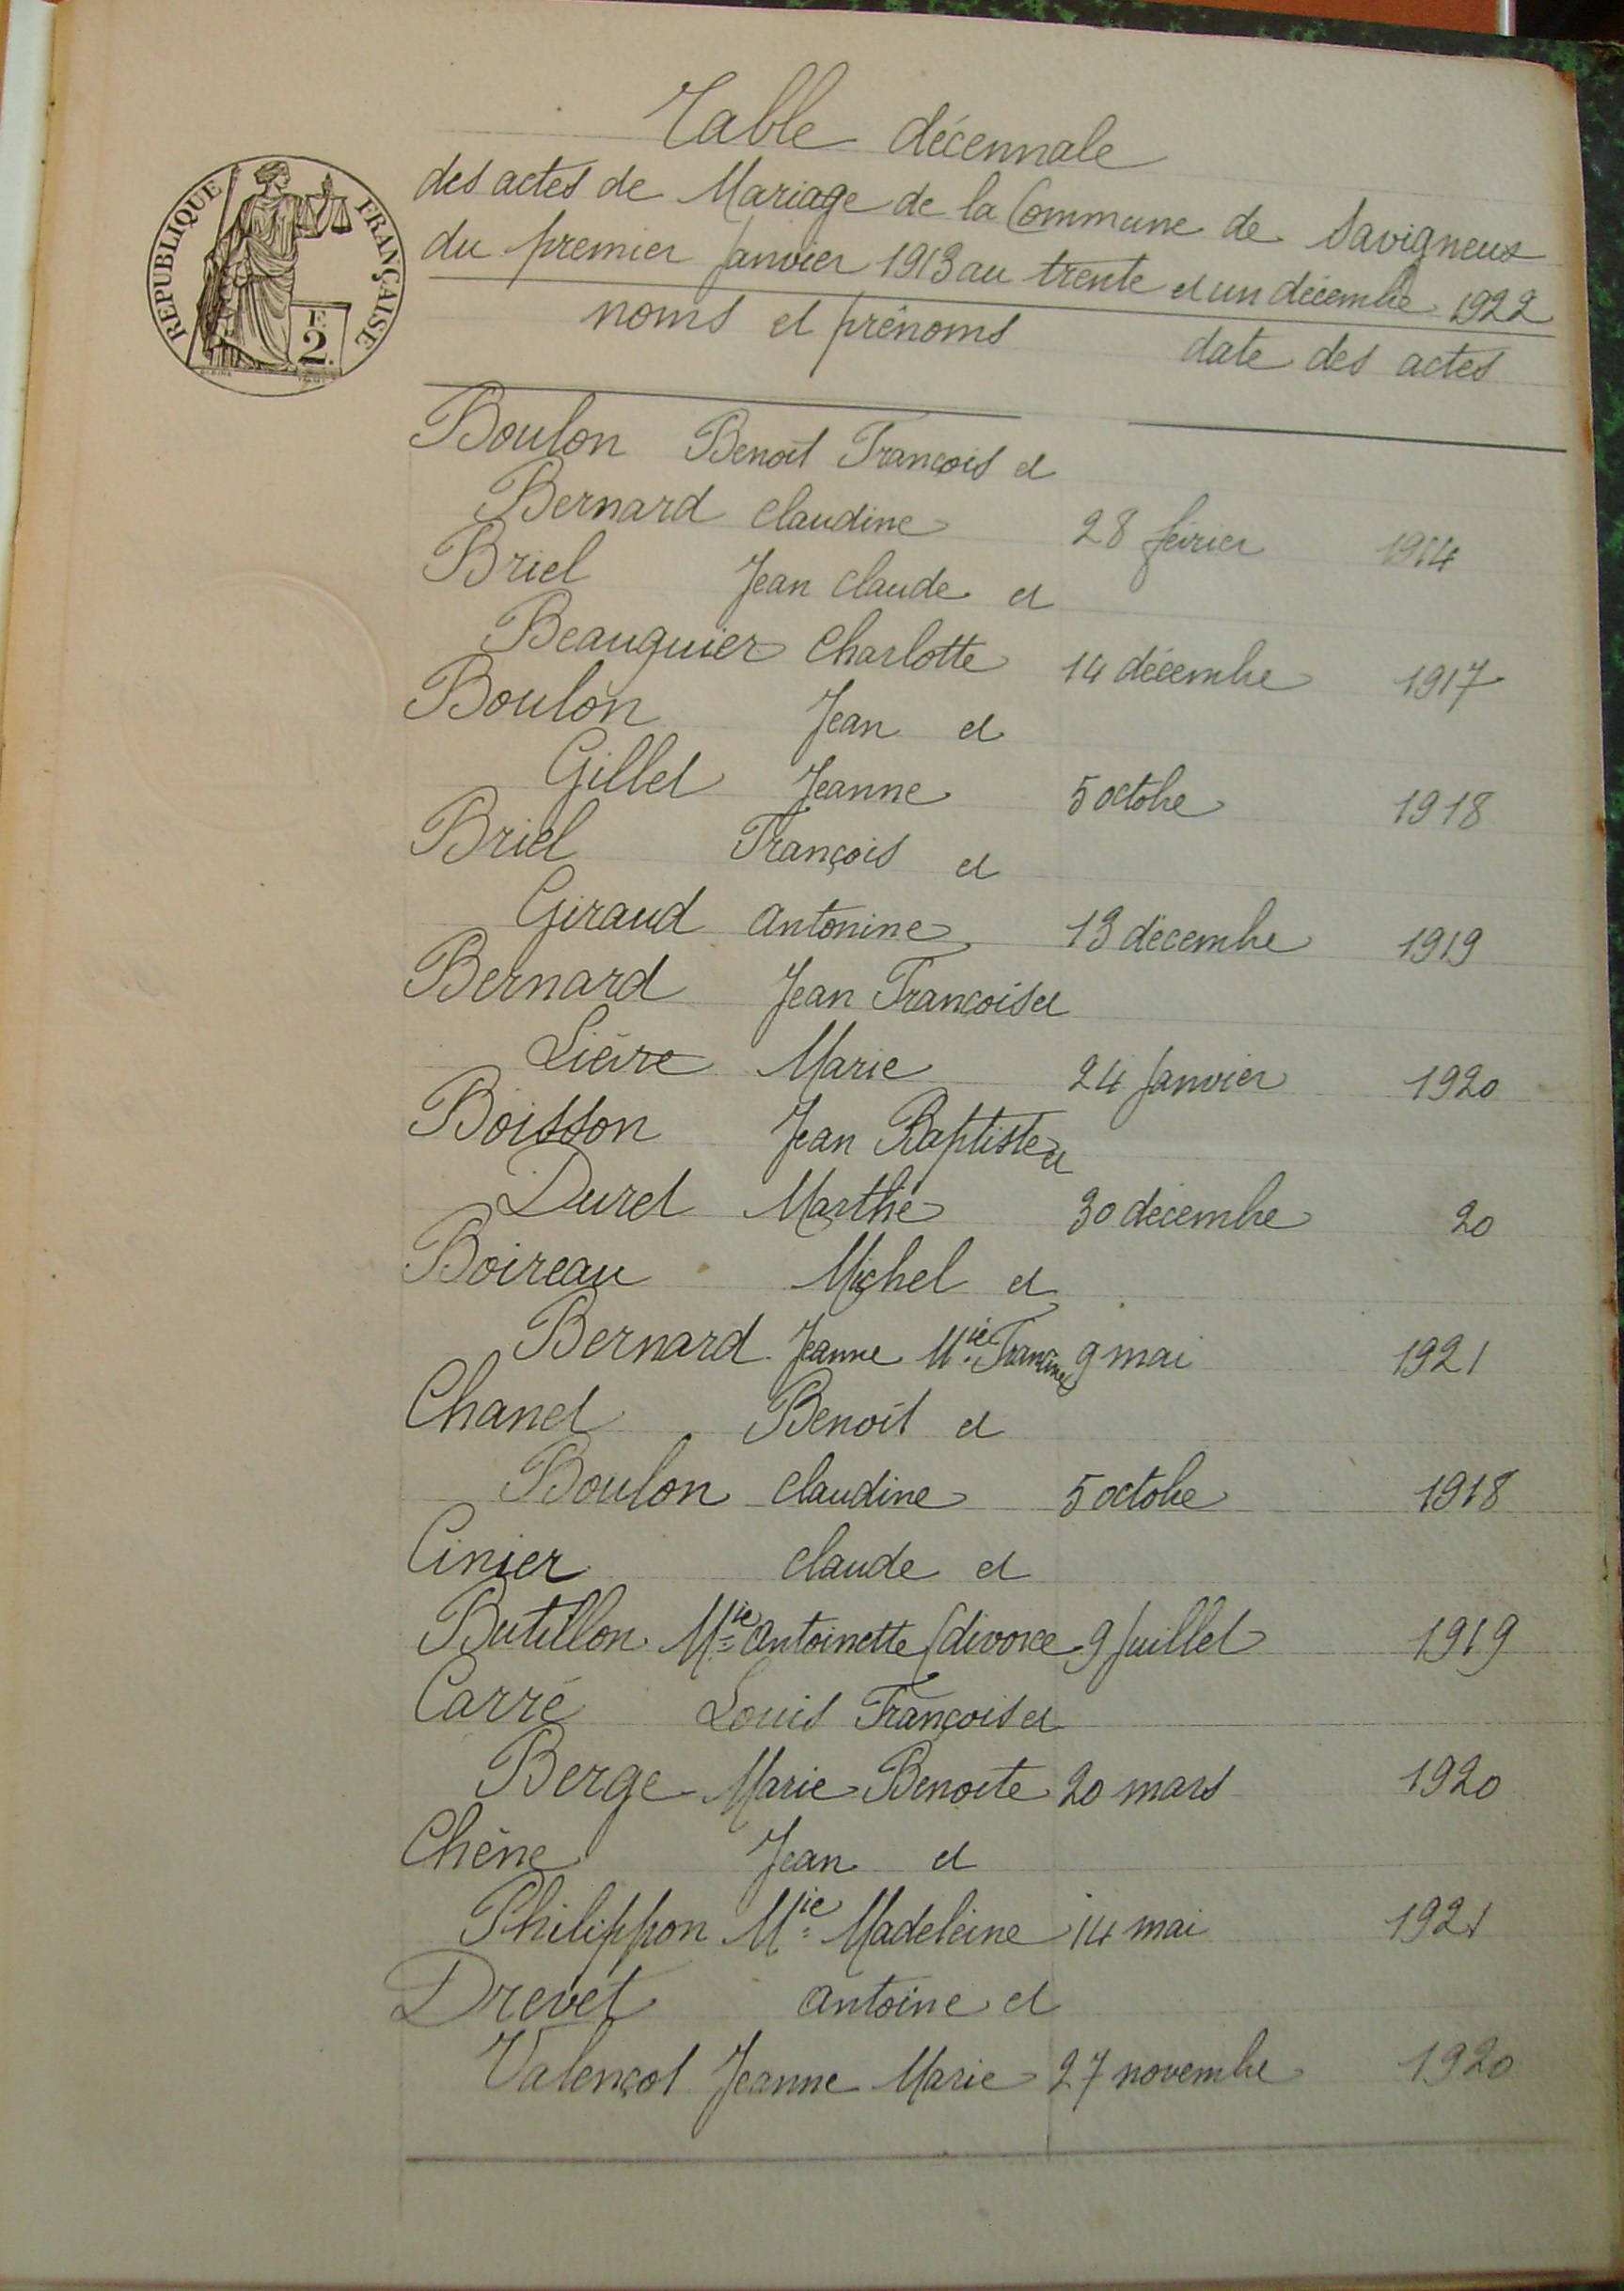 Table décennale
des actes de Mariage de la Commune de Savigneux
du premier Janvier 1913 au trente et un décembre 1922
noms et prénoms date des actes
REPUBLIQUE FRANÇAISE
F.
2.
Boulon Benoît François et
Bernard Claudine 28 février 1914
Briel Jean Claude et
Beauquier Charlotte 14 décembre 1917
Boulon Jean et
Gillet Jeanne 5 octobre 1918
Briel François et
Giraud Antonine 13 décembre 1919
Bernard Jean François et
Lièvre Marie 24 Janvier 1920
Boisson Jean Baptiste et
Duret Marthe 30 décembre 20
Boireau Michel et
Bernard Jeanne Mie Francine 9 mai 1921
Chanet Benoît et
Boulon Claudine 5 octobre 1918
Cinier Claude et
Butillon Mie Antoinette (divorce 9 Juillet 1919
Carré Louis François et
Berge Marie Benoite 20 mars 1920
Chêne Jean et
Philippon Mie Madeleine 14 mai 1921
Drevet Antoine et
Valençot Jeanne Marie 27 novembre 1920